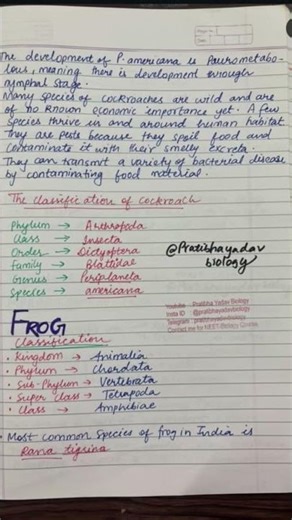 The development of P. americana is Paurometabo-
lous, meaning there is development through
nymphal stage.
Many species of cockroaches are wild and are
of no known economic importance yet. A few
species thrive in and around human habitat
They are pests because they spoil food and
contaminate it with their smelly excreta.
They can transmit a variety of bacterial disease
by contaminating food material.
The classification of cockroach
Phylum → Arthropoda
Class → Insecta
Order → Dictyoptera
Family → Blattidae
Genus → Periplaneta
Species → americana
@Pratibhayadav
biology
Youtube - Pratibha Yadav Biology
Insta ID - @pratibhayadavbiology
Telegram - pratibhayadavbiology
Contact me for NEET Biology
FROG
Classification
• Kingdom → Animalia
• Phylum → Chordata
• Sub-Phylum → Vertebrata
• Super Class → Tetrapoda
• Class → Amphibiae
• Most common species of frog in India is
Rana tigrina